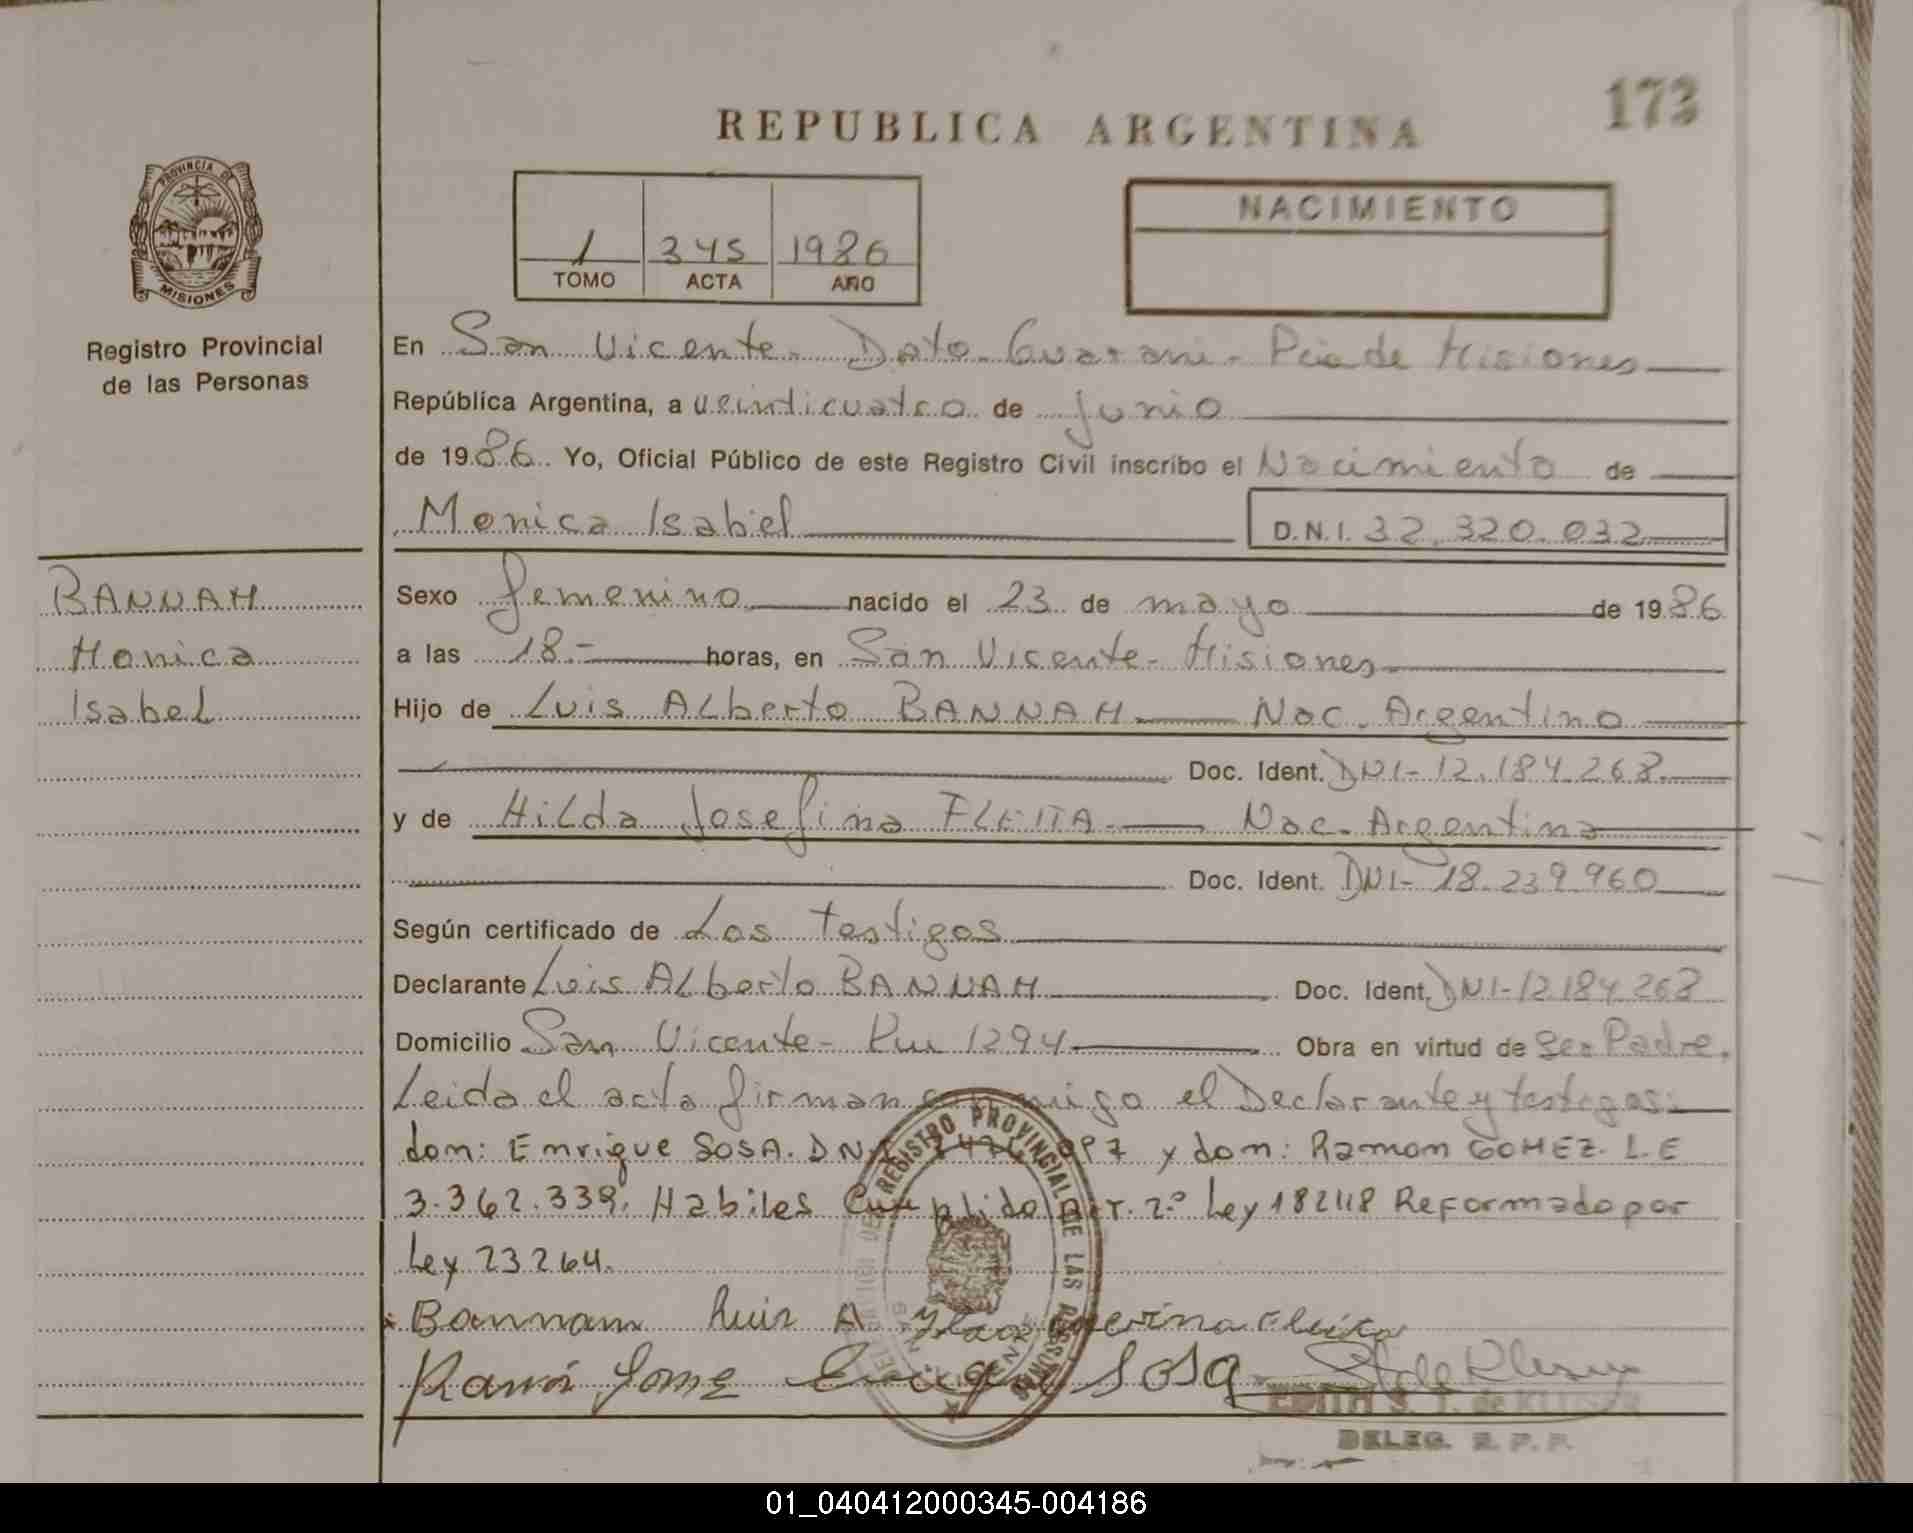 173
REPUBLICA ARGENTINA
PROVINCIA DE
MISIONES
Registro Provincial
de las Personas
1 345 1986
TOMO ACTA AÑO
NACIMIENTO
En San Vicente - Dpto. Guarani - Pcia de Misiones
República Argentina, a veinticuatro de junio
de 1986 Yo, Oficial Público de este Registro Civil inscribo el Nacimiento de
Monica Isabel D.N.I. 32.320.032
BANNAH
Monica
Isabel
Sexo femenino nacido el 23 de mayo de 1986
a las 18.- horas, en San Vicente - Misiones
Hijo de Luis Alberto BANNAH Nac. Argentino
Doc. Ident. DNI - 12.184.268
y de Hilda Josefina FLEITA Nac. Argentina
Doc. Ident. DNI - 18.239.960
Según certificado de Los testigos
Declarante Luis Alberto BANNAH Doc. Ident. DNI - 12.184.268
Domicilio San Vicente - 1294 Obra en virtud de Ser Padre.
Leida el acta firman conmigo el Declarante y testigos:
don: Enrique SOSA. DNI y don: Ramon GOMEZ. L.E
3.362.339. Habiles Cumplido Art. 2º Ley 18248 Reformado por
Ley 23264.
Bannam Luis A
Ramón Gome Enrique Sosa
EDITH S. T. de
DELEG. R. P. P.
REGISTRO PROVINCIAL DE LAS PERSONAS
01_040412000345-004186